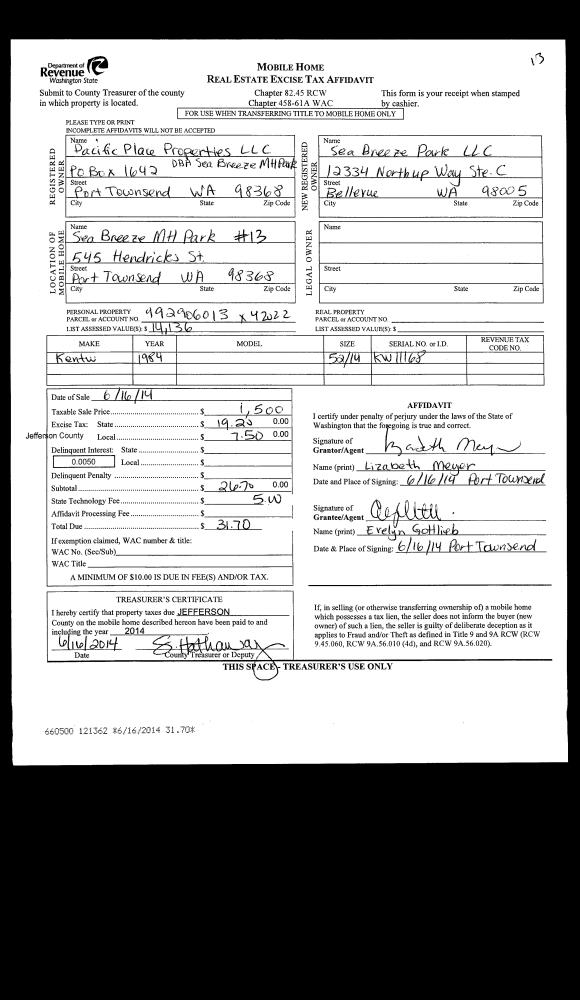 13
Department of
Revenue
Washington State
MOBILE HOME
REAL ESTATE EXCISE TAX AFFIDAVIT
Submit to County Treasurer of the county
in which property is located.
Chapter 82.45 RCW
Chapter 458-61A WAC
This form is your receipt when stamped
by cashier.
FOR USE WHEN TRANSFERRING TITLE TO MOBILE HOME ONLY
PLEASE TYPE OR PRINT
INCOMPLETE AFFIDAVITS WILL NOT BE ACCEPTED
REGISTERED OWNER
Name
Pacific Place Properties LLC
DBA Sea Breeze MH Park
PO Box 1642
Street
Port Townsend WA 98368
City State Zip Code
NEW REGISTERED OWNER
Name
Sea Breeze Park LLC
12334 Northup Way Ste. C
Street
Bellevue WA 98005
City State Zip Code
LOCATION OF MOBILE HOME
Name
Sea Breeze MH Park #13
545 Hendricks St.
Street
Port Townsend WA 98368
City State Zip Code
LEGAL OWNER
Name
Street
City State Zip Code
PERSONAL PROPERTY
PARCEL or ACCOUNT NO. 992906013 x 42022
LIST ASSESSED VALUE(S): $ 14,136
REAL PROPERTY
PARCEL or ACCOUNT NO.
LIST ASSESSED VALUE(S): $
MAKE YEAR MODEL SIZE SERIAL NO. or I.D. REVENUE TAX CODE NO.
Kentw 1984 52/14 KW11168
Date of Sale 6/16/14
Taxable Sale Price $ 1,500
Excise Tax: State $ 19.20 0.00
Jefferson County Local $ 7.50 0.00
Delinquent Interest: State $
0.0050 Local $
Delinquent Penalty $
Subtotal $ 26.70 0.00
State Technology Fee $ 5.00
Affidavit Processing Fee $
Total Due $ 31.70
If exemption claimed, WAC number & title:
WAC No. (Sec/Sub)
WAC Title
A MINIMUM OF $10.00 IS DUE IN FEE(S) AND/OR TAX.
AFFIDAVIT
I certify under penalty of perjury under the laws of the State of
Washington that the foregoing is true and correct.
Signature of
Grantor/Agent
Name (print) Lizabeth Meyer
Date and Place of Signing: 6/16/14 Port Townsend
Signature of
Grantee/Agent
Name (print) Evelyn Gottlieb
Date & Place of Signing: 6/16/14 Port Townsend
TREASURER'S CERTIFICATE
I hereby certify that property taxes due JEFFERSON
County on the mobile home described hereon have been paid to and
including the year 2014
6/16/2014 S. Hathaway
Date County Treasurer or Deputy
If, in selling (or otherwise transferring ownership of) a mobile home
which possesses a tax lien, the seller does not inform the buyer (new
owner) of such a lien, the seller is guilty of deliberate deception as it
applies to Fraud and/or Theft as defined in Title 9 and 9A RCW (RCW
9.45.060, RCW 9A.56.010 (4d), and RCW 9A.56.020).
THIS SPACE - TREASURER'S USE ONLY
660500 121362 *6/16/2014 31.70*